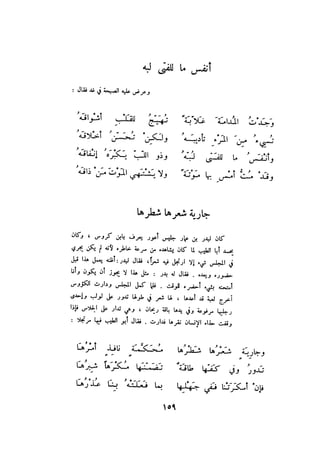 أنفس ما للفتى لبه
وعرض عليه الصبحة في غد فقال :
وَجَدْتُ المُدامَةَ غَلاّبَةً تُهَيّجُ للقَلْبِ أشْواقَهُ
تُسيءُ منَ المَرْءِ تأديبَهُ ولَكِنْ تُحَسّنُ أخْلاقَهُ
وأنْفَسُ ما للفَتى لُبُّهُ وذو اللّبّ يَكْرَهُ إنْفَاقَهُ
وقَدْ مُتُّ أمْسِ بهَا مَوْتَةً ولا يَشْتَهي المَوْتَ مَن ذاقَهُ
جارية شعرها شطرها
كان لبدر بن عمار جليس أعور يعرف بابن كروس ، وكان
يحسد أبا الطيب لما كان يشاهده من سرعة خاطره لأنه لم يكن يجري
في المجلس شيء إلا ارتجل فيه شعراً، فقال لبدر: أظنه يعمل هذا قبل
حضوره ويعده . فقال له بدر : مثل هذا لا يجوز أن يكون وأنا
أمتحنه بشيء أحضره للوقت . فلما كمل المجلس ودارت الكؤوس
أخرج لعبة قد أعدها ، لها شعر في طولها تدور على لولب وإحدى
رجليها مرفوعة وفي يدها باقة ريحان ، وهي تدار على الجلاس فإذا
وقفت حذاء الإنسان نقرها فدارت . فقال أبو الطيب فيها مرتجلا :
وجارِيَةٍ شَعْرُهَا شَطْرُهَا مُحَكَّمَةٍ نافِذٍ أمْرُهَا
تَدورُ وفي كَفّهَا طاقَةٌ تَضَمّنَهَا مُكْرَهاً شِبرُهَا
فإنْ أسْكَرَتْنَا فَفي جَهْلِهَا بما فَعَلَتْهُ بنَا عُذْرُهَا
١٥٩